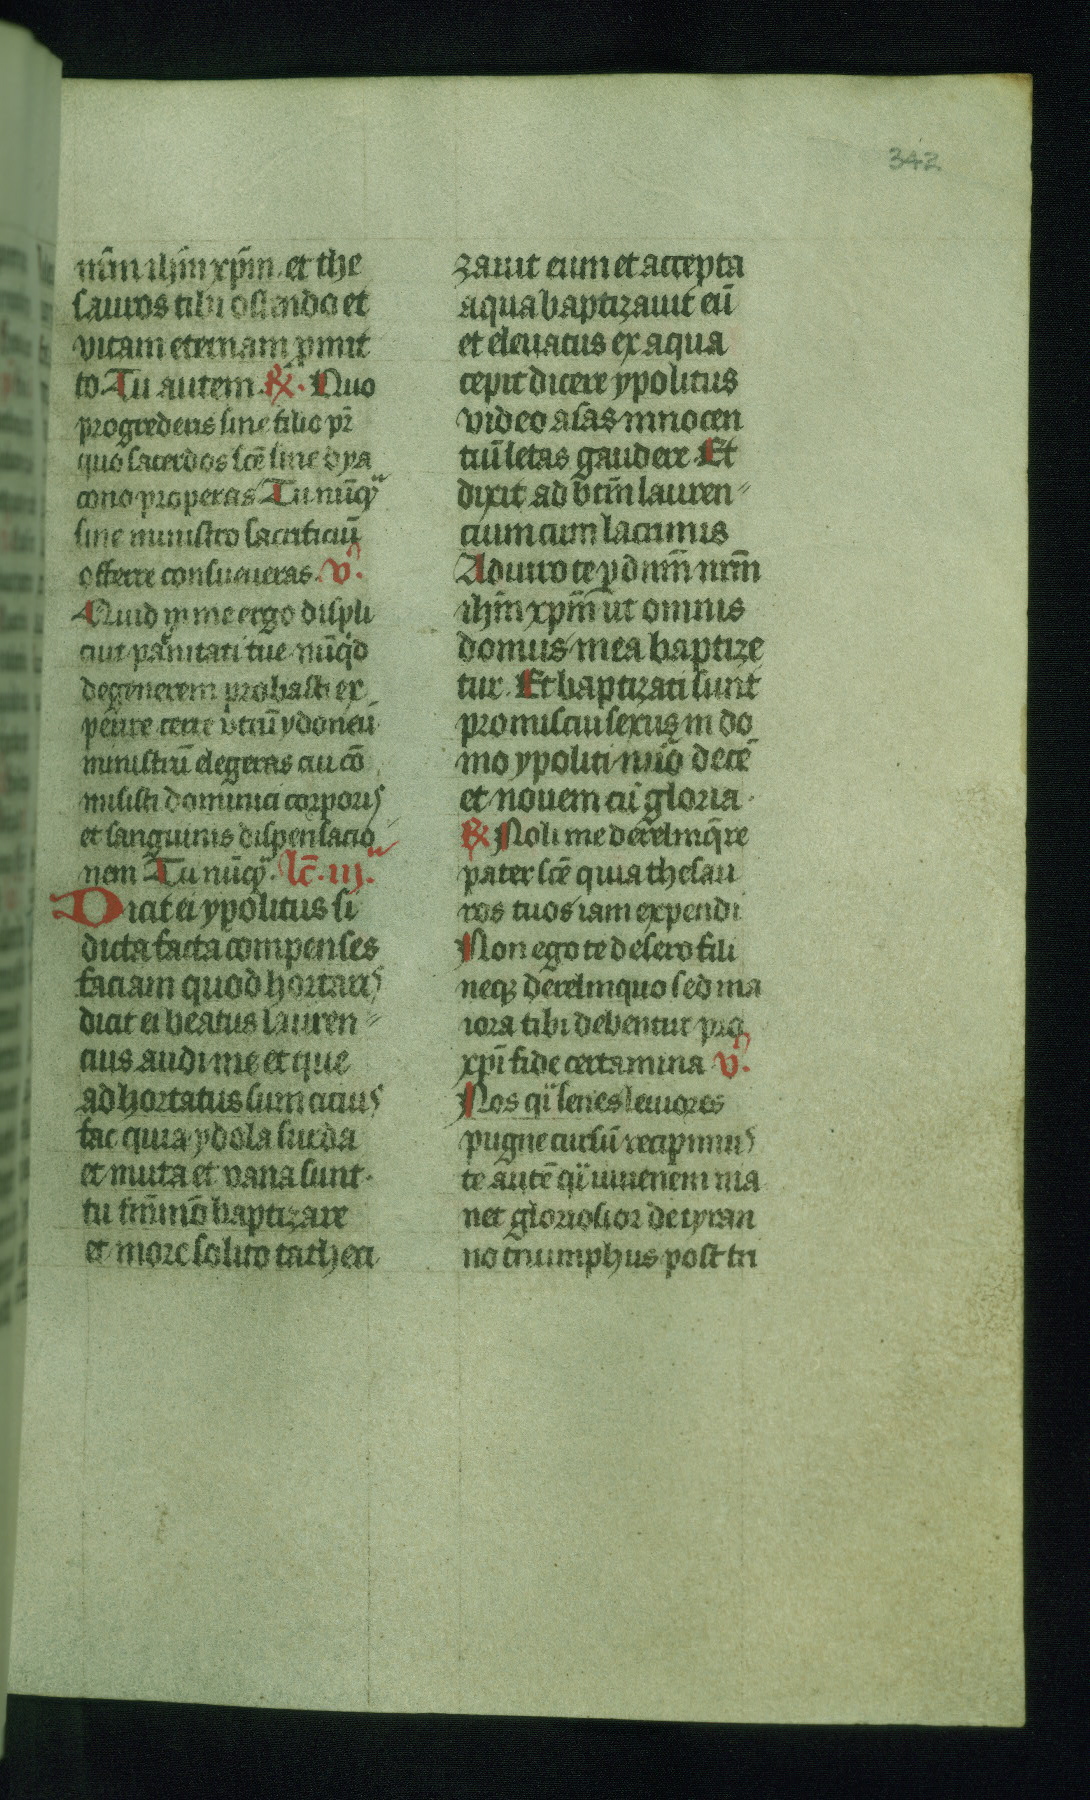 342
nr̄m ih̄m xp̄m. et the
sauros tibi ostendo et
vitam eternam ꝓmit
to Tu autem. ℟. Quo
progrederis sine filio pr̄
quo sacerdos sc̄e sine dya
cono properas Tu nūqͣ
sine ministro sacrificiū
offerre consueueras. v̾.
Quid in me ergo displi
cuit pat̾nitati tue nūqͥd
degenerem probasti ex
perire certe vtrū ydoneū
ministrū elegeras cui cō
misisti dominici corporis
et sanguinis dispensacio
nem Tu nūqͣ. lc̄. iij.ᵃ
Dicit ei ypolitus si
dicta facta compenses
faciam quod hortaris
dicit ei beatus lauren
cius audi me et que
adhortatus sum cicius
fac quia ydola surda
et muta et vana sunt.
tu sum̄mo baptizare
et more solito catheci
zauit eum et accepta
aqua baptizauit eū
et eleuatus ex aqua
cepit dicere ypolitus
video aīas innocen
tiū letas gaudere Et
dixit ad btm̄ lauren
cium cum lacrimis
Adiuro te ꝑ dnm̄ nrm̄
ihm̄ xpm̄ ut omnis
domus mea baptize
tur. Et baptizati sunt
promiscui sexus in do
mo ypoliti nūo decē
et nouem cū gloria.
℟ Noli me derelinq̄re
pater sc̄e quia thesau
ros tuos iam expendi
Non ego te desero fili
neqꝫ derelinquo sed ma
iora tibi debentur pro
xpī fide certamina v̾.
Nos qͥ senes leuioris
pugne cursū recipimus
te autē qͥ iuuenem ma
net gloriosior de tyran
no triumphus post tri